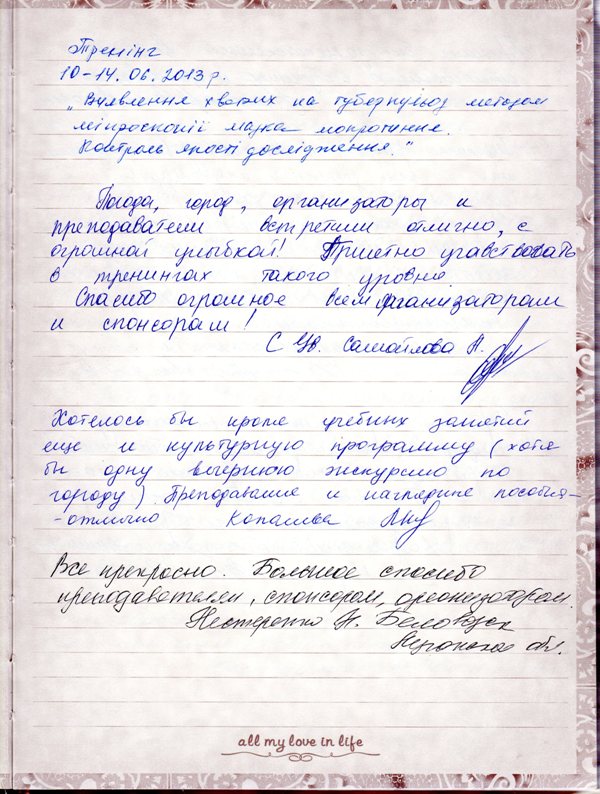 Тренінг
10-14.06.2013 р.
„Виявлення хворих на туберкульоз методом
мікроскопії мазка мокротиння.
Контроль якості дослідження."
Погода, город, организаторы и
преподаватели встретили отлично, с
огромной улыбкой! Приятно учавствовать
в тренингах такого уровня
Спасибо огромное всем организаторам
и спонсорам!
С ув. Самойлова Н.
Хотелось бы кроме учебных занятий
еще и культурную программу (хотя
бы одну вечернюю экскурсию по
городу). Преподавание и наглядные пособия-
-отлично
Все прекрасно. Большое спасибо
преподавателям, спонсорам, организаторам.
Нестеренко Н. Беловодск
Луганская обл.
all my love in life